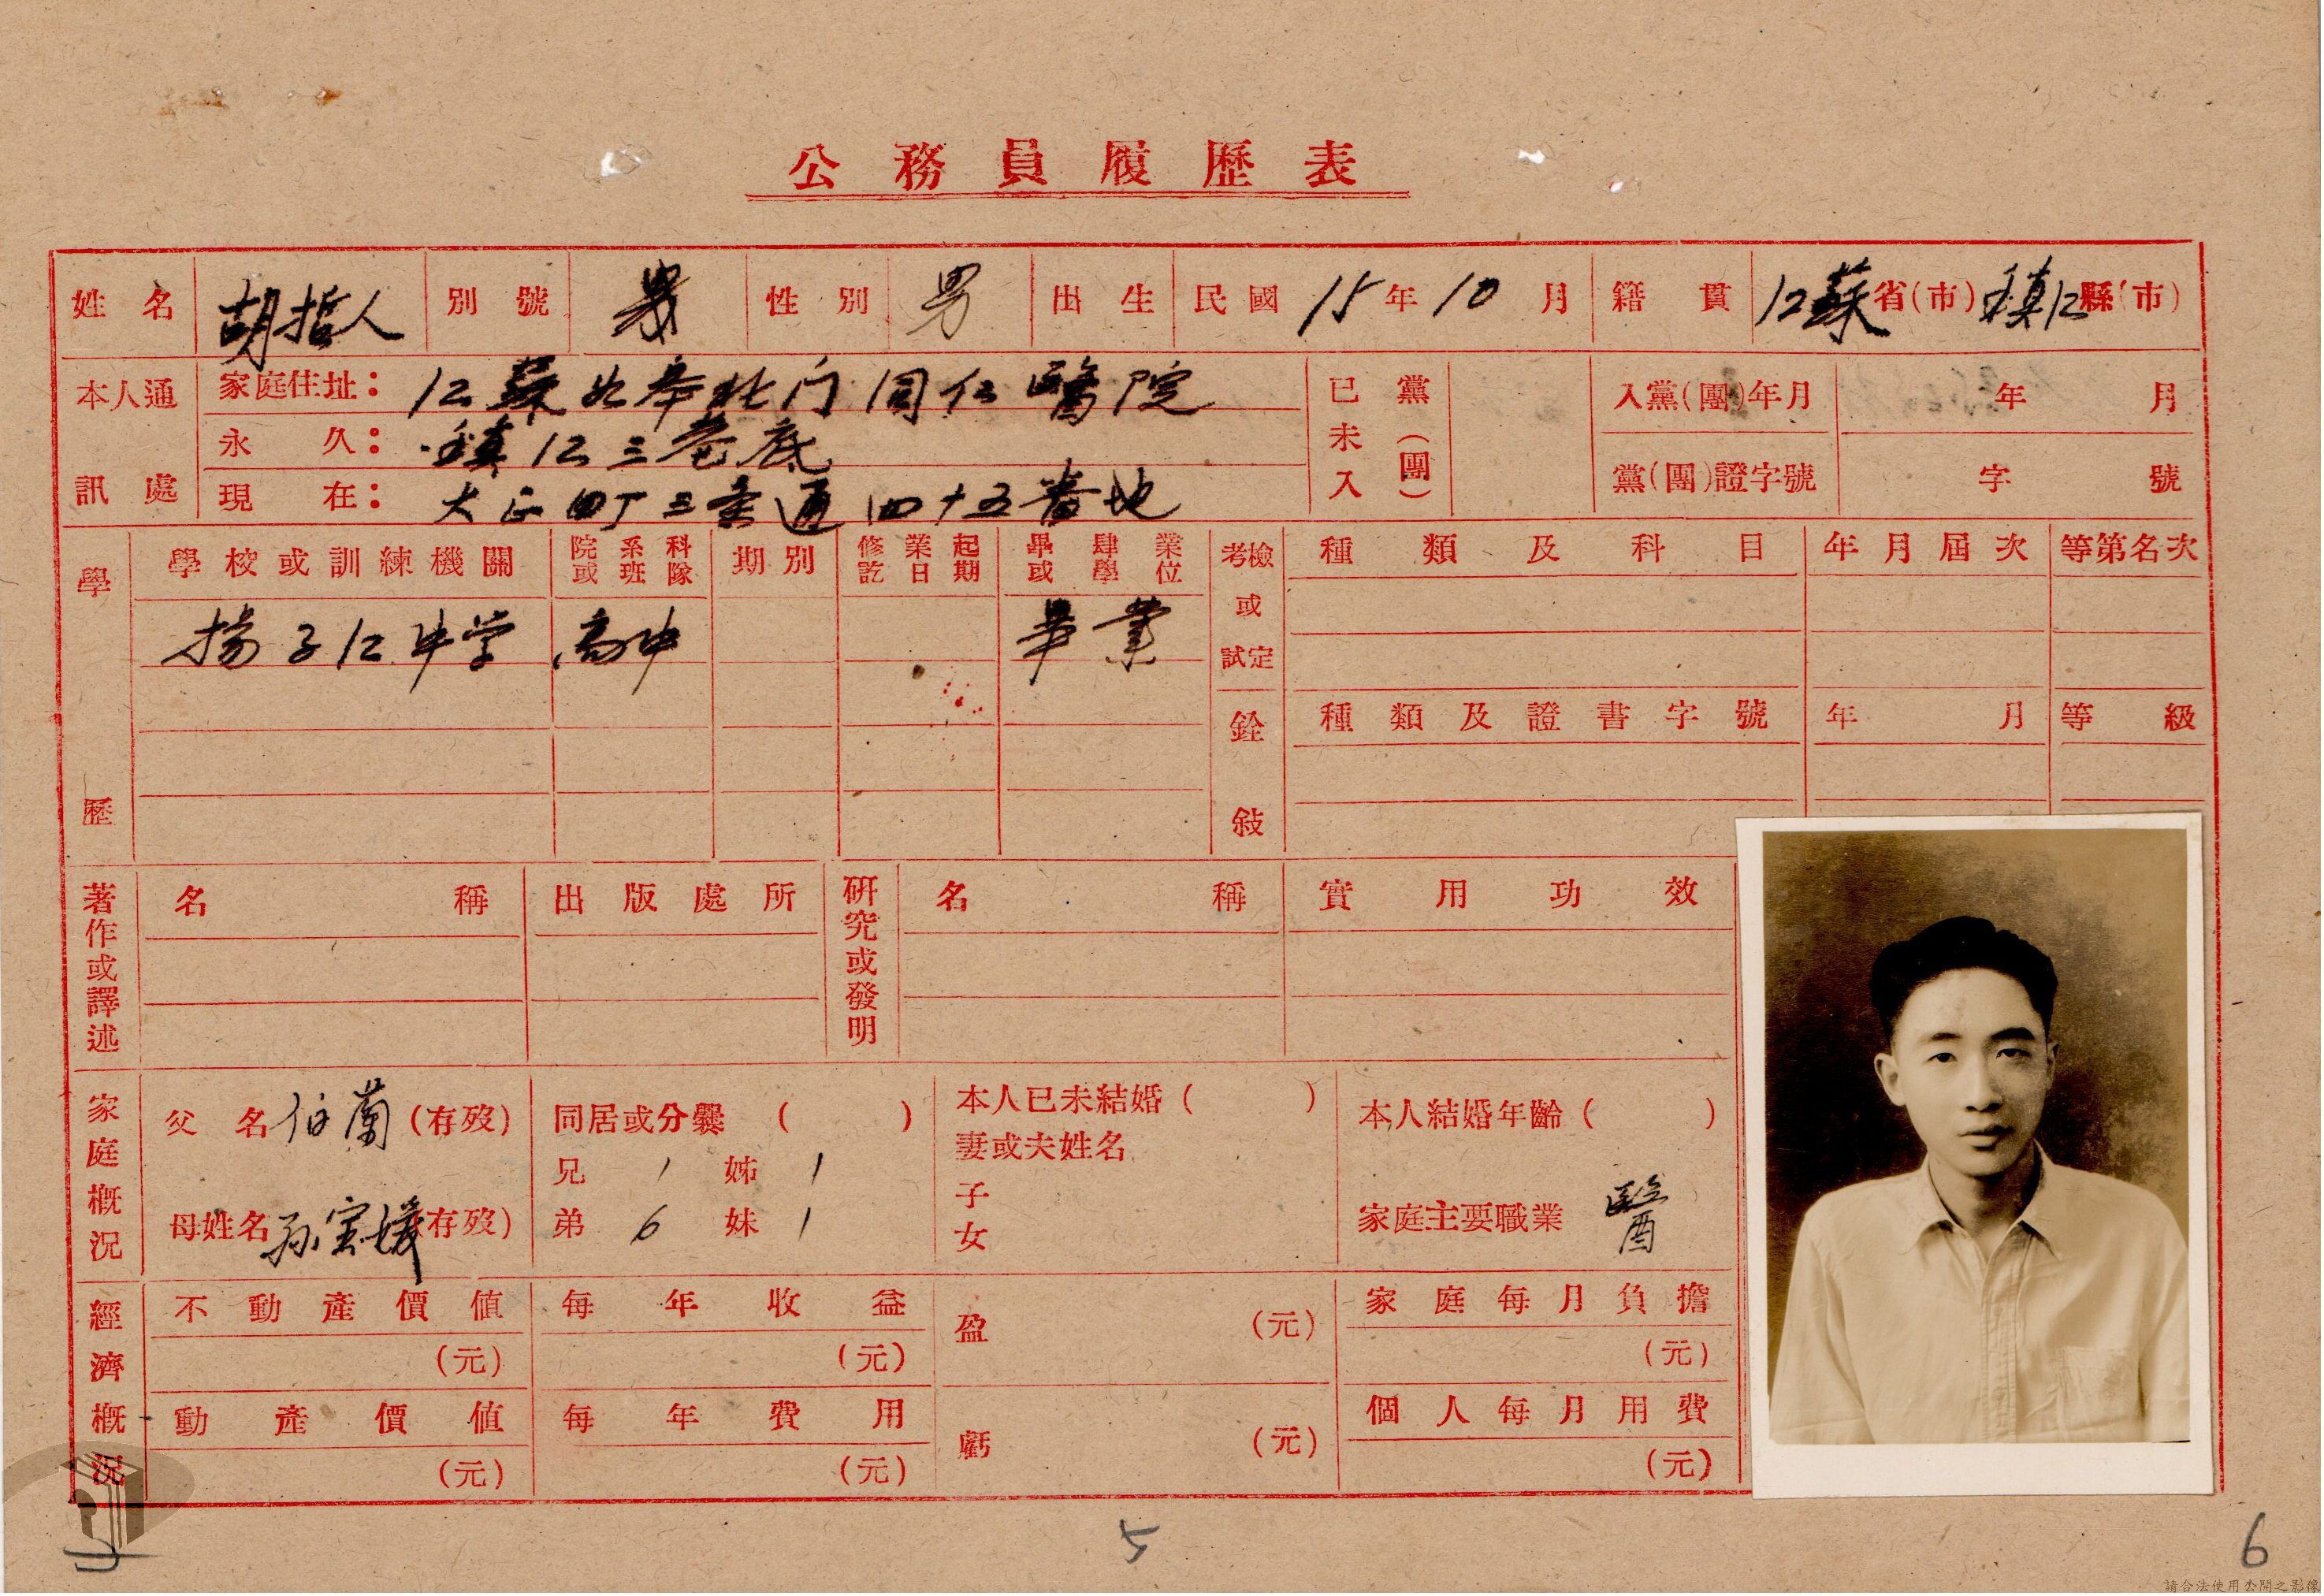 公務員履歷表
姓名 胡哲人 別號 性別 男 出生 民國 15年10月 籍貫 江蘇省(市)鎮江縣(市)
本人通訊處
家庭住址：江蘇如皋北门同仁醫院
永久：鎮江三巷底
現在：大正町三条通四十五番地
已未入黨(團)
入黨(團)年月 年 月
黨(團)證字號 字 號
學歷
學校或訓練機關 院系科或班隊 期別 修業起訖日期 畢肄業或學位
揚子江中学 高中 畢業
考檢或試定 種類及科目 年月屆次 等第名次
銓敍 種類及證書字號 年月 等級
著作或譯述 名稱 出版處所
研究或發明 名稱 實用功效
家庭概況
父名 伯蘭 (存歿)
母姓名 孙宝媛 (存歿)
同居或分爨 ( )
兄 1 姊 1
弟 6 妹 1
本人已未結婚 ( )
妻或夫姓名
子
女
本人結婚年齡 ( )
家庭主要職業 醫
經濟概況
不動產價值 每年收益 盈 (元) 家庭每月負擔
(元) (元) (元)
動產價值 每年費用 虧 (元) 個人每月用費
(元) (元) (元)
5
6
請合法使用公開之影像